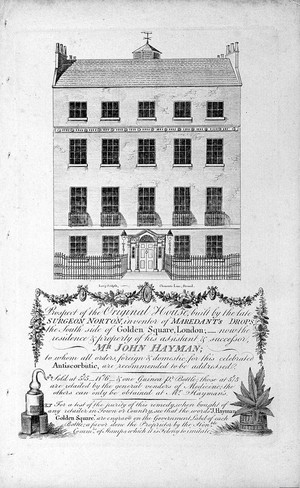 Prospect of the Original House, built by the late
SURGEON NORTON, inventor of MAREDANT'S DROPS,
the South side of Golden Square, London; now the
residence & property of his assistant & successor,
Mr. JOHN HAYMAN;
to whom all orders foreign & domestic for this celebrated
Antiscorbutic, are recommended to be addressed.
Sold at 5/5, & one Guinea pr. Bottle; those at 5/5
are retailed by the general venders of Medicine, the
others can only be obtained at Mr. Hayman's.
For a test of the purity of this remedy, when bought of
any retailer in Town or Country, see that the words J. Hayman
Golden Square are engrav'd on the Government Label of each
Bottle; a favor done the Proprietor by the
of Stamps, which it is Felony to imitate.